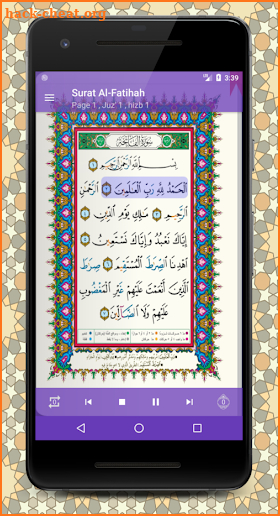 hack-cheat.org
3:39
Surat Al-Fatihah
Page 1 , Juz' 1 , hizb 1
سُورَةُ الْفَاتِحَةِ
بِسْمِ ٱللَّهِ ٱلرَّحْمَٰنِ ٱلرَّحِيمِ ١
ٱلْحَمْدُ لِلَّهِ رَبِّ ٱلْعَٰلَمِينَ ٢ ٱلرَّحْمَٰنِ
ٱلرَّحِيمِ ٣ مَٰلِكِ يَوْمِ ٱلدِّينِ ٤
إِيَّاكَ نَعْبُدُ وَإِيَّاكَ نَسْتَعِينُ ٥
ٱهْدِنَا ٱلصِّرَٰطَ ٱلْمُسْتَقِيمَ ٦ صِرَٰطَ
ٱلَّذِينَ أَنْعَمْتَ عَلَيْهِمْ غَيْرِ ٱلْمَغْضُوبِ
عَلَيْهِمْ وَلَا ٱلضَّآلِّينَ ٧
0 0
hack-cheat.org